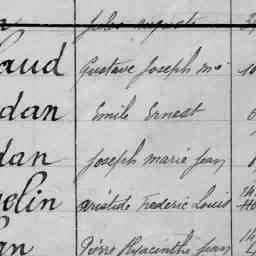 Jules Auguste
aud Gustave Joseph Me 10
dan Emile Ernest
dan Joseph Marie Jean
elin Aristide Frederic Louis
an Pierre Hyacinthe Jean